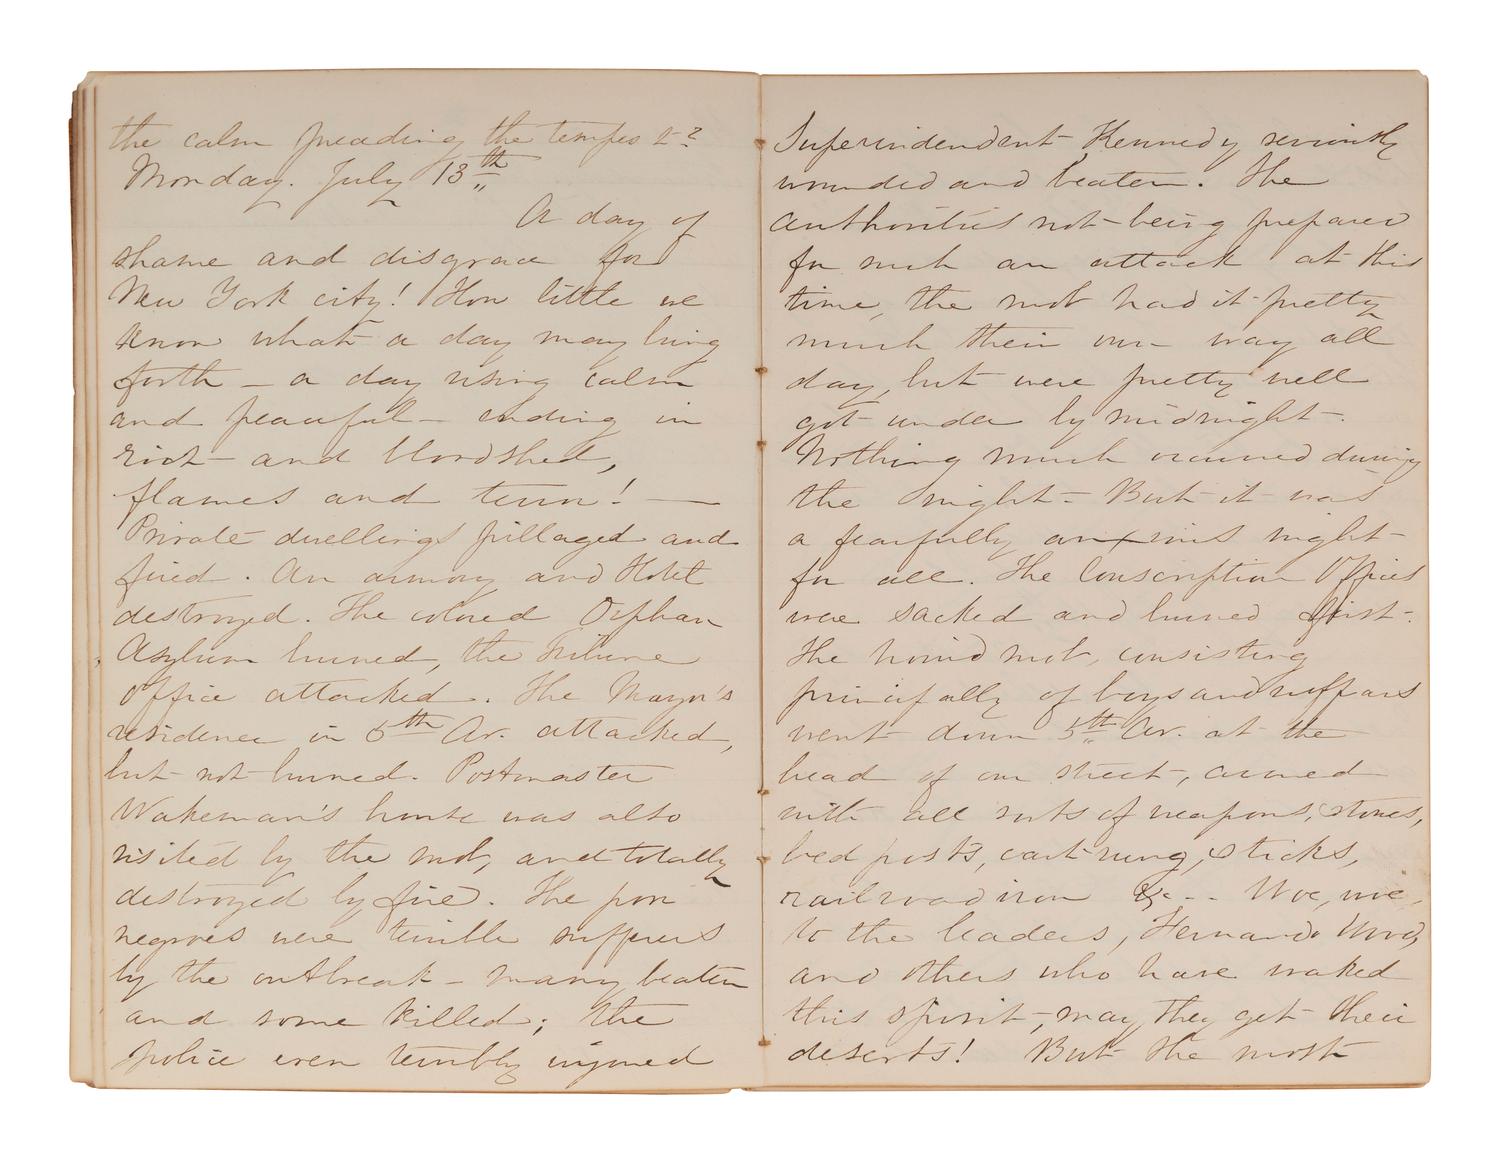 the calm preading the tempest?
Monday. July 13th
A day of
shame and disgrace for
New York city! How little we
know what a day may bring
forth - a day rising calm
and peaceful - ending in
riot and bloodshed,
flames and terror! —
Private dwellings pillaged and
fired. An armory and Hotel
destroyed. The colored Orphan
Asylum burned, the Tribune
Office attacked. The Mayor's
residence in 5th Av. attacked,
but not burned. Postmaster
Wakeman's house was also
visited by the mob, and totally
destroyed by fire. The poor
negroes were terrible sufferers
by the outbreak - many beaten
and some killed; the
police even terribly injured
Superindendent Kennedy seriously
wounded and beaten. The
authorities not being prepared
for such an attack at this
time, the mob had it pretty
much their own way all
day, but were pretty well
got under by midnight.
Nothing much occurred during
the night - But it was
a fearfully anxious night
for all. The Conscription Offices
were sacked and burned first.
The horrid mob, consisting
principally of boys and ruffians
went down 5th Av. at the
head of our street, armed
with all sorts of weapons, stones,
bed posts, cart rung, sticks,
railroad iron &c -- Woe, woe,
to the leaders, Fernando Wood,
and others who have waked
this spirit, may they get their
deserts! But the most